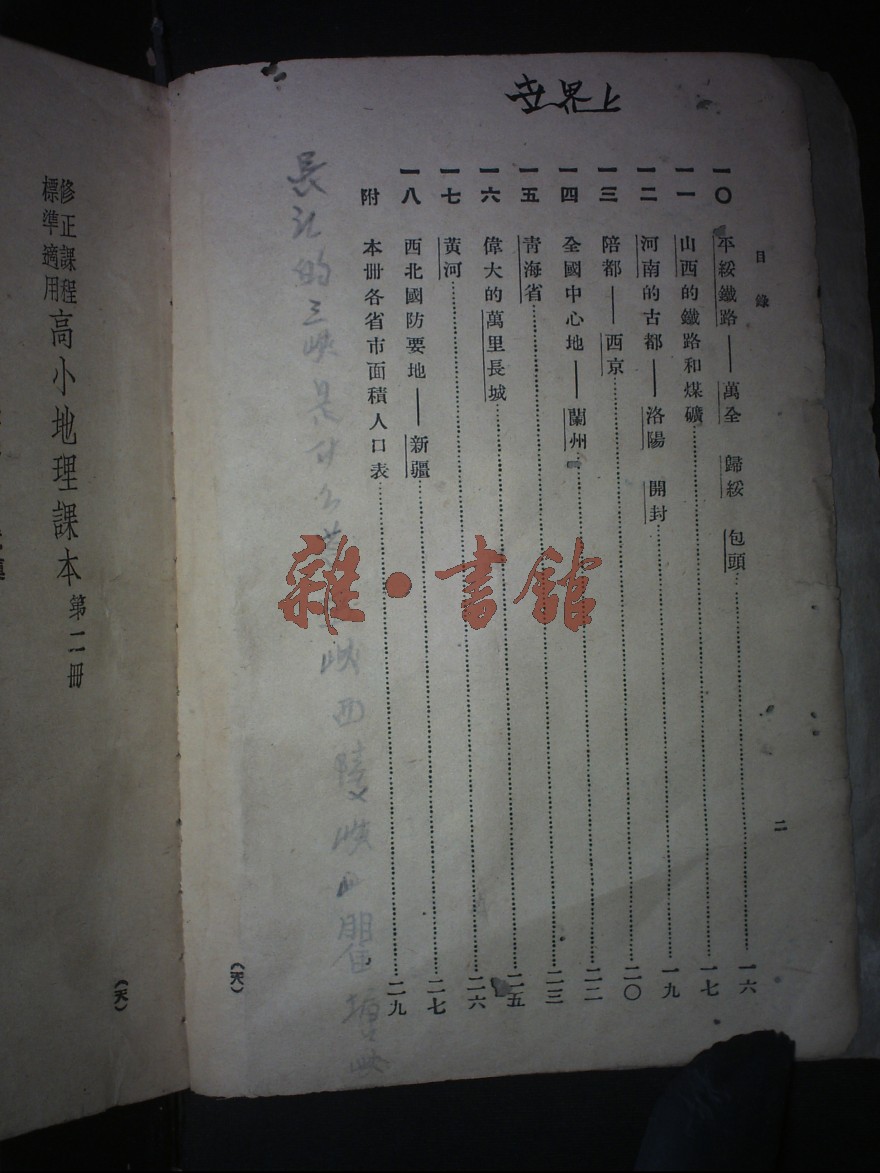 世界上
目錄
一〇 平綏鐵路——萬全 歸綏 包頭……一六
一一 山西的鐵路和煤礦……一七
一二 河南的古都——洛陽 開封……一九
一三 陪都——西京……二〇
一四 全國中心地——蘭州……二二
一五 青海省……二三
一六 偉大的萬里長城……二五
一七 黃河……二六
一八 西北國防要地——新疆……二七
附 本册各省市面積人口表……二九
二
長江的三峽是什么
峽西陵峽
(天)
雜·書館
修正課程
標準適用
高小地理課本 第二冊
(天)